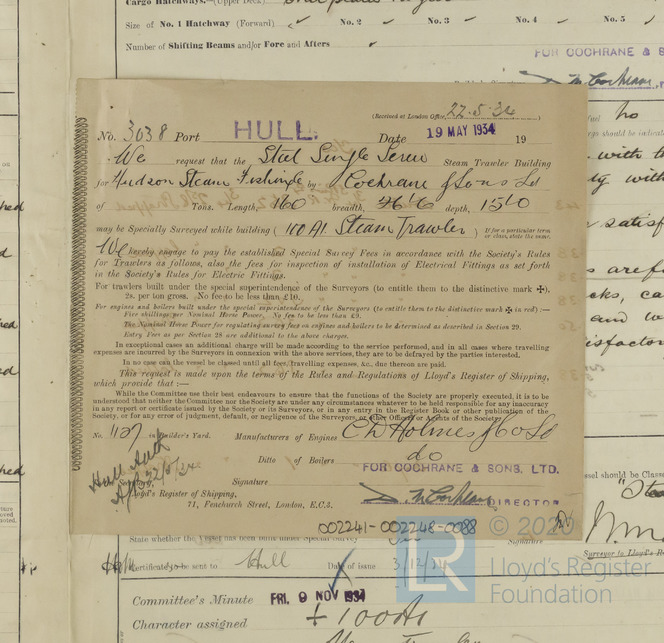 Cargo Hatchways.—(Upper Deck)
Size of No. 1 Hatchway (Forward) ✓ No. 2 ✓ No. 3 ✓ No. 4 ✓ No. 5
Number of Shifting Beams and/or Fore and Afters
FOR COCHRANE & S
(Received at London Office, 22.5.34
No. 3038 Port HULL. Date 19 MAY 1934 19
We request that the Steel Single Screw Steam Trawler Building
for Hudson Steam Fishing Co by Cochrane & Sons Ld
of Tons. Length, 160 breadth, 26'6 depth, 15'0
may be Specially Surveyed while building ( 100 A1. Steam Trawler ) If for a particular term or class, state the same.
We hereby engage to pay the established Special Survey Fees in accordance with the Society's Rules
for Trawlers as follows, also the fees for inspection of installation of Electrical Fittings as set forth
in the Society's Rules for Electric Fittings.
For trawlers built under the special superintendence of the Surveyors (to entitle them to the distinctive mark ✠),
2s. per ton gross. No fee to be less than £10.
For engines and boilers built under the special superintendence of the Surveyors (to entitle them to the distinctive mark ✠ in red) :—
Five shillings per Nominal Horse Power. No fee to be less than £9.
The Nominal Horse Power for regulating survey fees on engines and boilers to be determined as described in Section 29.
Entry Fees as per Section 28 are additional to the above charges.
In exceptional cases an additional charge will be made according to the service performed, and in all cases where travelling
expenses are incurred by the Surveyors in connexion with the above services, they are to be defrayed by the parties interested.
In no case can the vessel be classed until all fees, travelling expenses, &c., due thereon are paid.
This request is made upon the terms of the Rules and Regulations of Lloyd's Register of Shipping,
which provide that :—
While the Committee use their best endeavours to ensure that the functions of the Society are properly executed, it is to be
understood that neither the Committee nor the Society are under any circumstances whatever to be held responsible for any inaccuracy
in any report or certificate issued by the Society or its Surveyors, or in any entry in the Register Book or other publication of the
Society, or for any error of judgment, default, or negligence of the Surveyors or other Officers or Agents of the Society.
No. 1127 in Builder's Yard. Manufacturers of Engines C D Holmes & Co Ld
Ditto of Boilers do
FOR COCHRANE & SONS, LTD.
Signature
Lloyd's Register of Shipping, DIRECTOR
71, Fenchurch Street, London, E.C.3.
002241-002248-0088
© 2020
Lloyd's Register
Foundation
State whether the Vessel has been built under Special Survey
Signature
Surveyor to Lloyd's
Certificate to be sent to Hull Date of issue 3/12/34
Committee's Minute FRI. 9 NOV 1934
Character assigned + 100A1